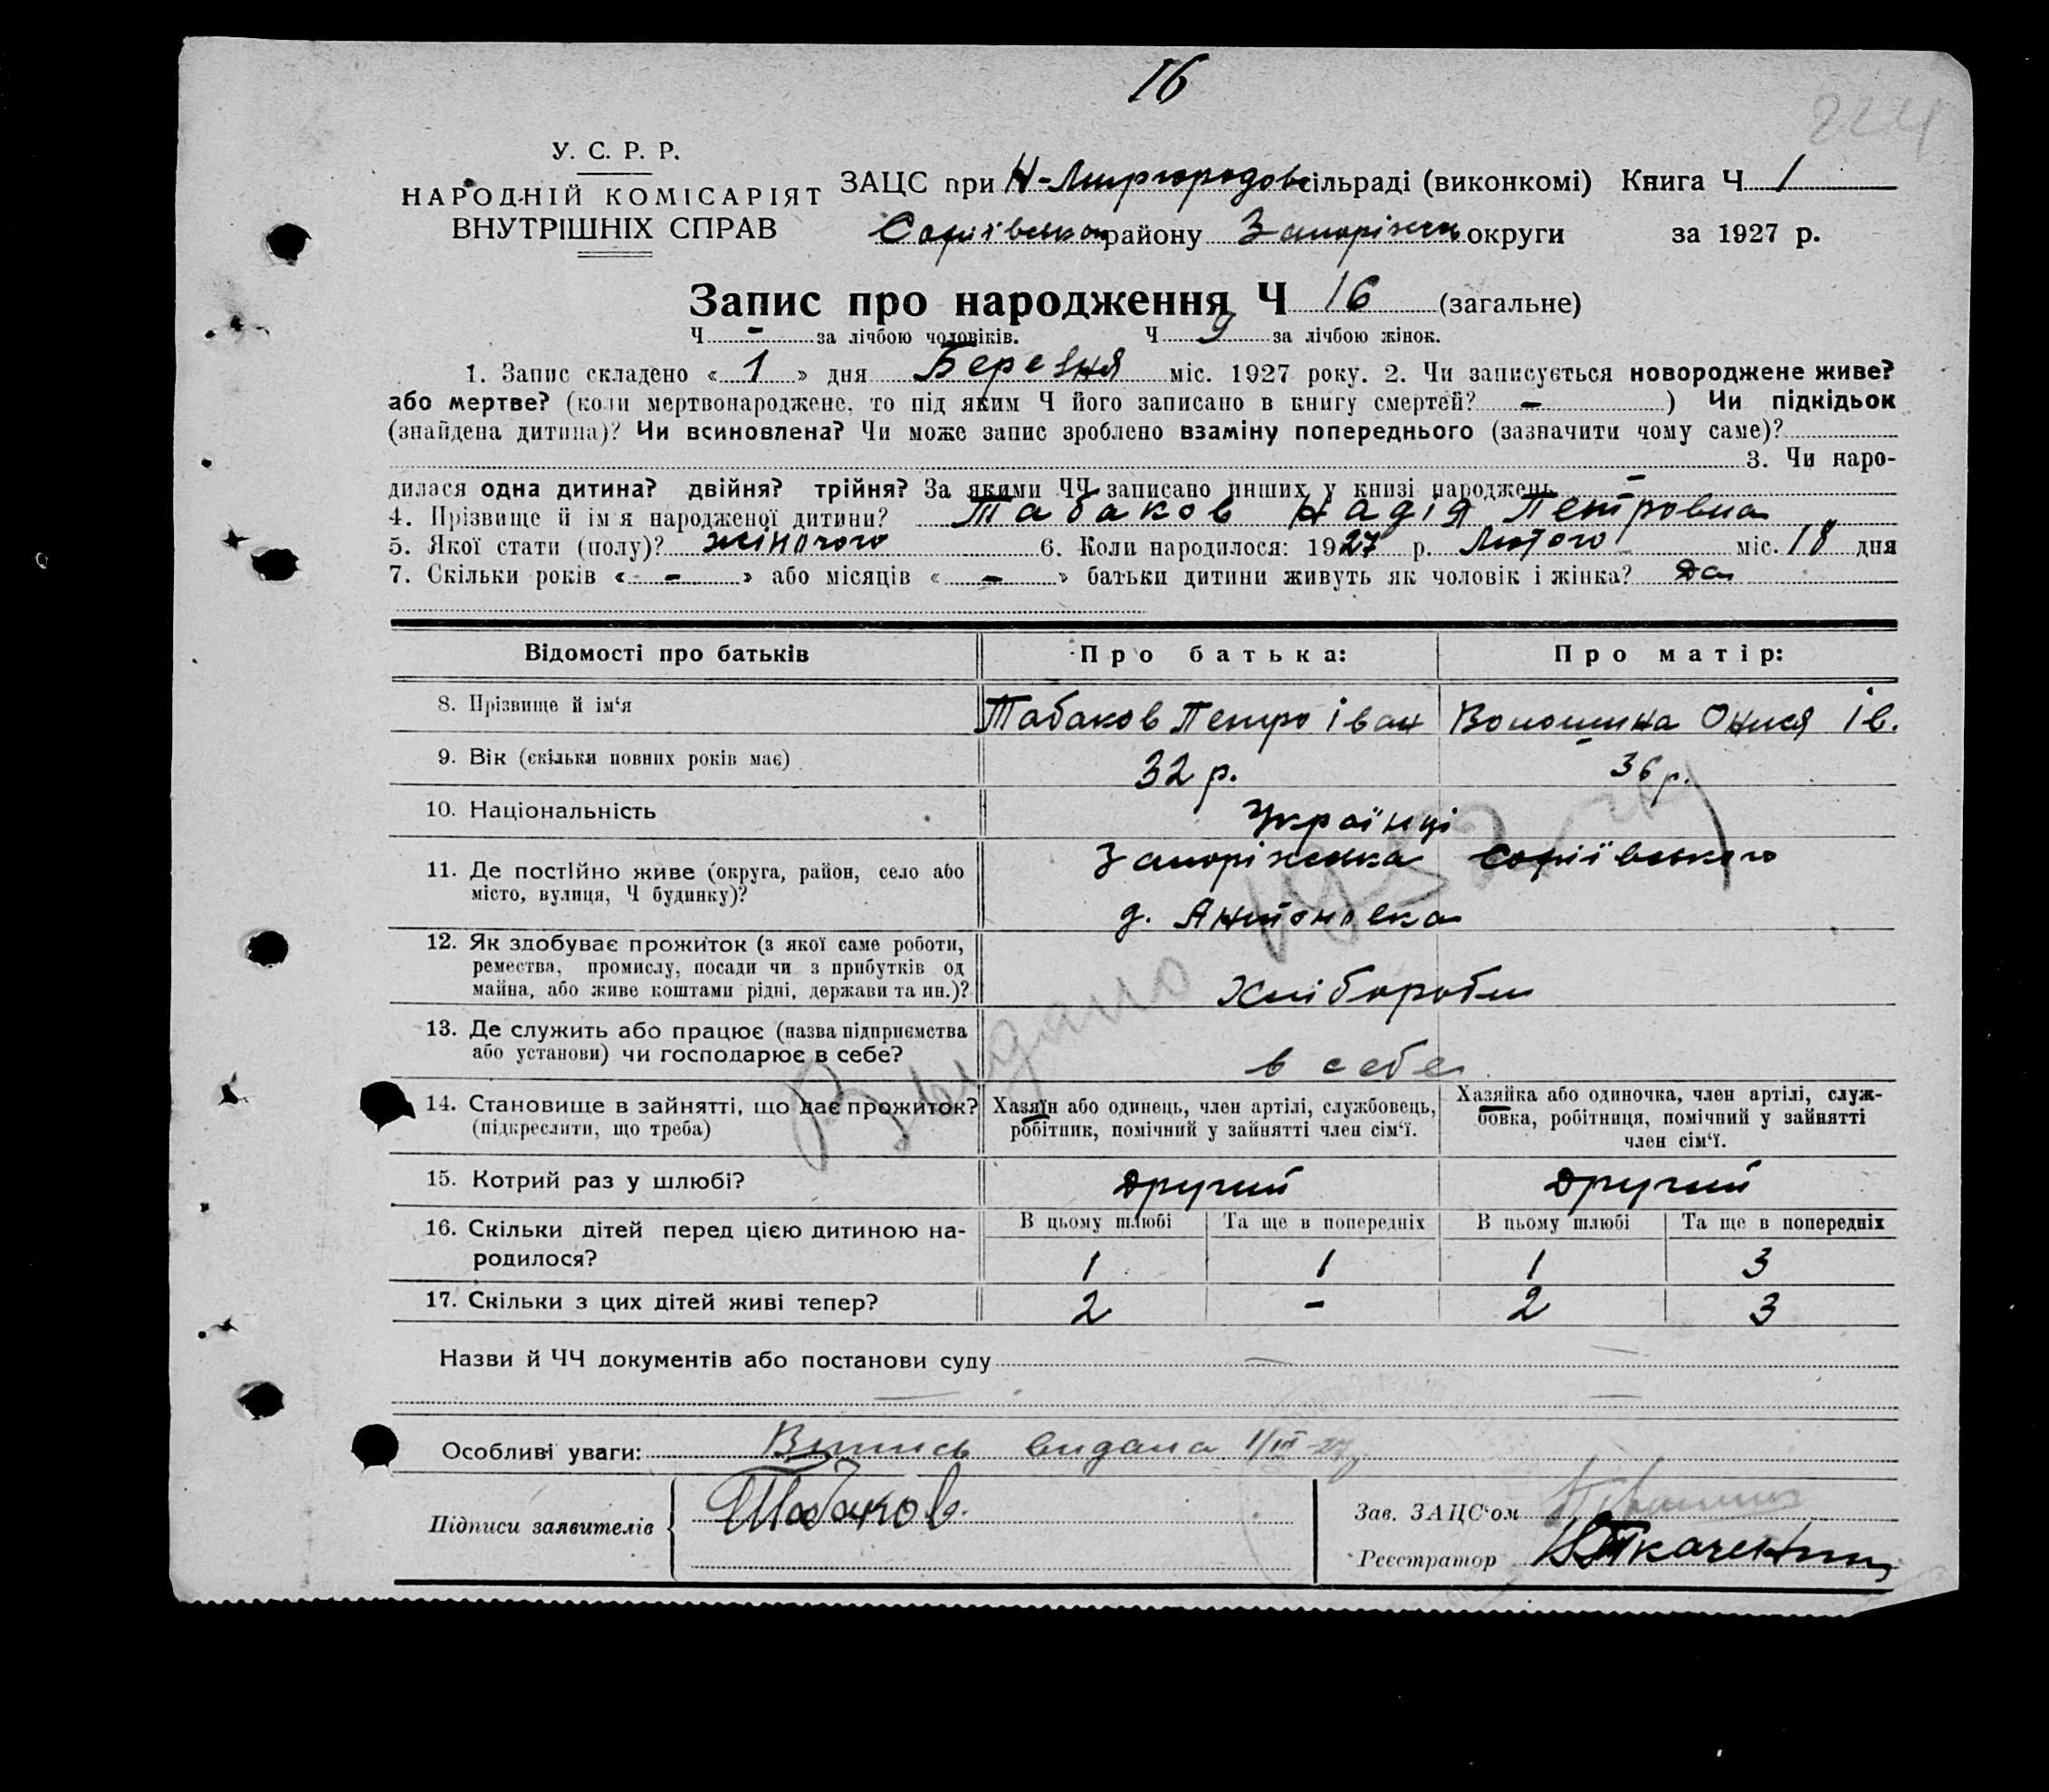 16
224
У. С. Р. Р.
НАРОДНІЙ КОМІСАРІЯТ
ВНУТРІШНІХ СПРАВ
ЗАЦС при Н-Миргородов сільраді (виконкомі) Книга Ч 1
Софіівськом району Запоріжськ округи за 1927 р.
Запис про народження Ч 16 (загальне)
Ч - за лічбою чоловіків. Ч 9 за лічбою жінок.
1. Запис складено « 1 » дня Березня міс. 1927 року. 2. Чи записується новороджене живе?
або мертве? (коли мертвонароджене, то під яким Ч його записано в книгу смертей? - ) Чи підкідьок
(знайдена дитина)? Чи всиновлена? Чи може запис зроблено взаміну попереднього (зазначити чому саме)?
3. Чи наро-
дилася одна дитина? двійня? трійня? За якими ЧЧ записано инших у книзі народжень -
4. Прізвище й ім я народженої дитини? Табаков Надія Петровна
5. Якої стати (полу)? жіночого 6. Коли народилося: 1927 р. Лютого міс. 18 дня
7. Скільки років « - » або місяців « - » батьки дитини живуть як чоловік і жінка? Да
Відомості про батьків Про батька: Про матір:
8. Прізвище й ім‘я Табаков Петро Іван Волошина Онися Ів.
9. Вік (скільки повних років має) 32 р. 36 р.
10. Національність Українці
11. Де постійно живе (округа, район, село або
місто, вулиця, Ч будинку)?
Запоріжська Софіївського
д. Антоновка
12. Як здобуває прожиток (з якої саме роботи,
ремества, промислу, посади чи з прибутків од
майна, або живе коштами рідні, держави та ин.)?
Хлібороби
13. Де служить або працює (назва підприємства
або установи) чи господарює в себе?
в себе
Видано
14. Становище в зайнятті, що дає прожиток?
(підкреслити, що треба)
Хазяїн або одинець, член артілі, службовець,
робітник, помічний у зайнятті член сім‘ї.
Хазяйка або одиночка, член артілі, служ-
бовка, робітниця, помічний у зайнятті
член сім‘ї.
15. Котрий раз у шлюбі? Другий Другий
16. Скільки дітей перед цією дитиною на-
родилося?
В цьому шлюбі Та ще в попередніх В цьому шлюбі Та ще в попередніх
1 1 1 3
17. Скільки з цих дітей живі тепер? 2 - 2 3
Назви й ЧЧ документів або постанови суду
Особливі уваги: Випись видана 1/III-27
Підписи заявителів Табаков.
Зав. ЗАЦС‘ом
Реєстратор Ткаченко